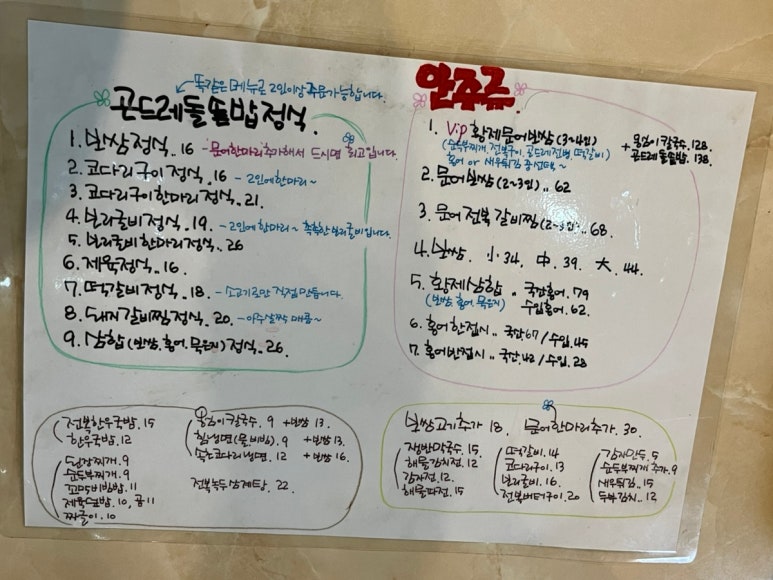 똑같은 메뉴로 2인이상 주문가능합니다.
곤드레돌솥밥정식.
1. 보쌈정식..16 - 문어한마리추가해서 드시면 최고입니다.
2. 코다리구이정식..16 - 2인에한마리~
3. 코다리구이한마리정식..21.
4. 보리굴비정식..19. - 2인에한마리~ 촉촉한보리굴비입니다.
5. 보리굴비한마리정식..26
6. 제육정식..16.
7. 떡갈비정식..18. - 소고기로만 직접만듭니다.
8. 돼지갈비찜정식..20. - 아주살짝매콤~
9. 삼합(보쌈,홍어,묵은지)정식..26.
안주류
1. Vip 황제문어보쌈(3~4인)
(순두부찌개, 전복구이, 곤드레전병, 떡갈비)
홍어 or 새우튀김 중선택~
+ 칼국수..128
곤드레돌솥밥..138.
2. 문어보쌈(2~3인)..62
3. 문어전복갈비찜(2~3인)..68.
4. 보쌈. 小.34. 中.39. 大.44.
5. 황제삼합.. 국산홍어..79
(보쌈,홍어,묵은지) 수입홍어..62.
6. 홍어한접시.. 국산67/수입.45
7. 홍어반접시.. 국산42/수입.28
전복한우국밥.15
한우국밥.12
된장찌개.9
순두부찌개.9
꼬막비빔밥.11
제육덮밥.10, 곱11
짜글이.10
칼국수.9 +보쌈 13.
칡냉면(물,비빔).9 +보쌈.13.
속초코다리냉면.12 +보쌈 16.
전복녹두삼계탕.22
보쌈고기추가 18. 문어한마리추가.30.
쟁반막국수.15.
해물김치전.12
감자전.12.
해물파전.15
떡갈비.14
코다리구이.13
보리굴비.16.
전복버터구이.20
감자만두.5
순두부찌개추가.9
새우튀김..15
두부김치..12